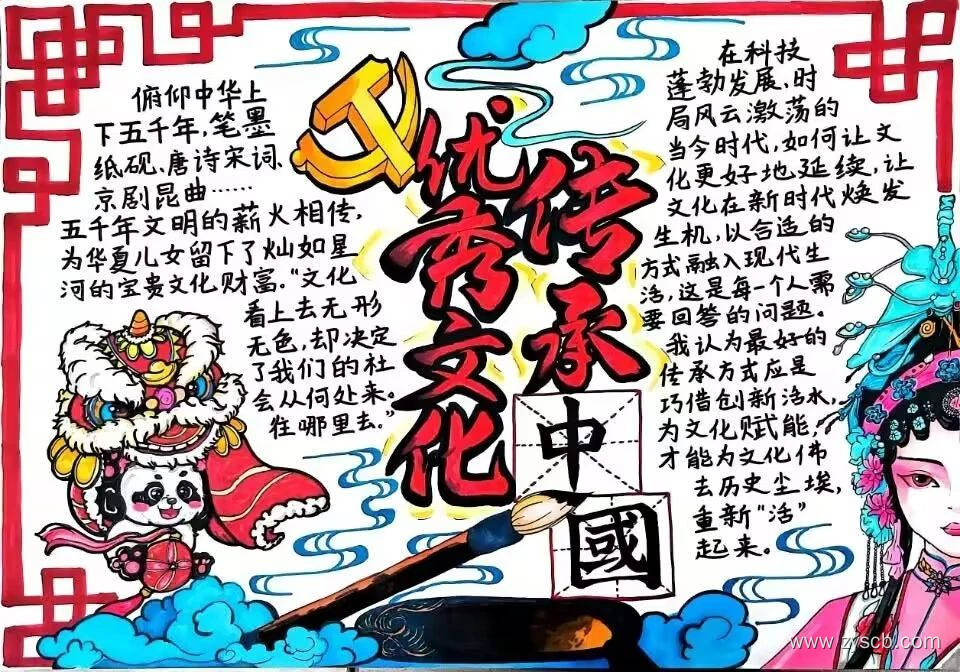 俯仰中华上
下五千年,笔墨
纸砚、唐诗宋词、
京剧昆曲……
五千年文明的薪火相传,
为华夏儿女留下了灿如星
河的宝贵文化财富。“文化
看上去无形
无色,却决定
了我们的社
会从何处来。
往哪里去。”
传承
优秀文化
中
國
在科技
蓬勃发展,时
局风云激荡的
当今时代,如何让文
化更好地延续,让
文化在新时代焕发
生机,以合适的
方式融入现代生
活,这是每一个人需
要回答的问题。
我认为最好的
传承方式应是
巧借创新活水,
为文化赋能,
才能为文化佛
去历史尘埃,
重新“活”
起来。
www.zyscb.com